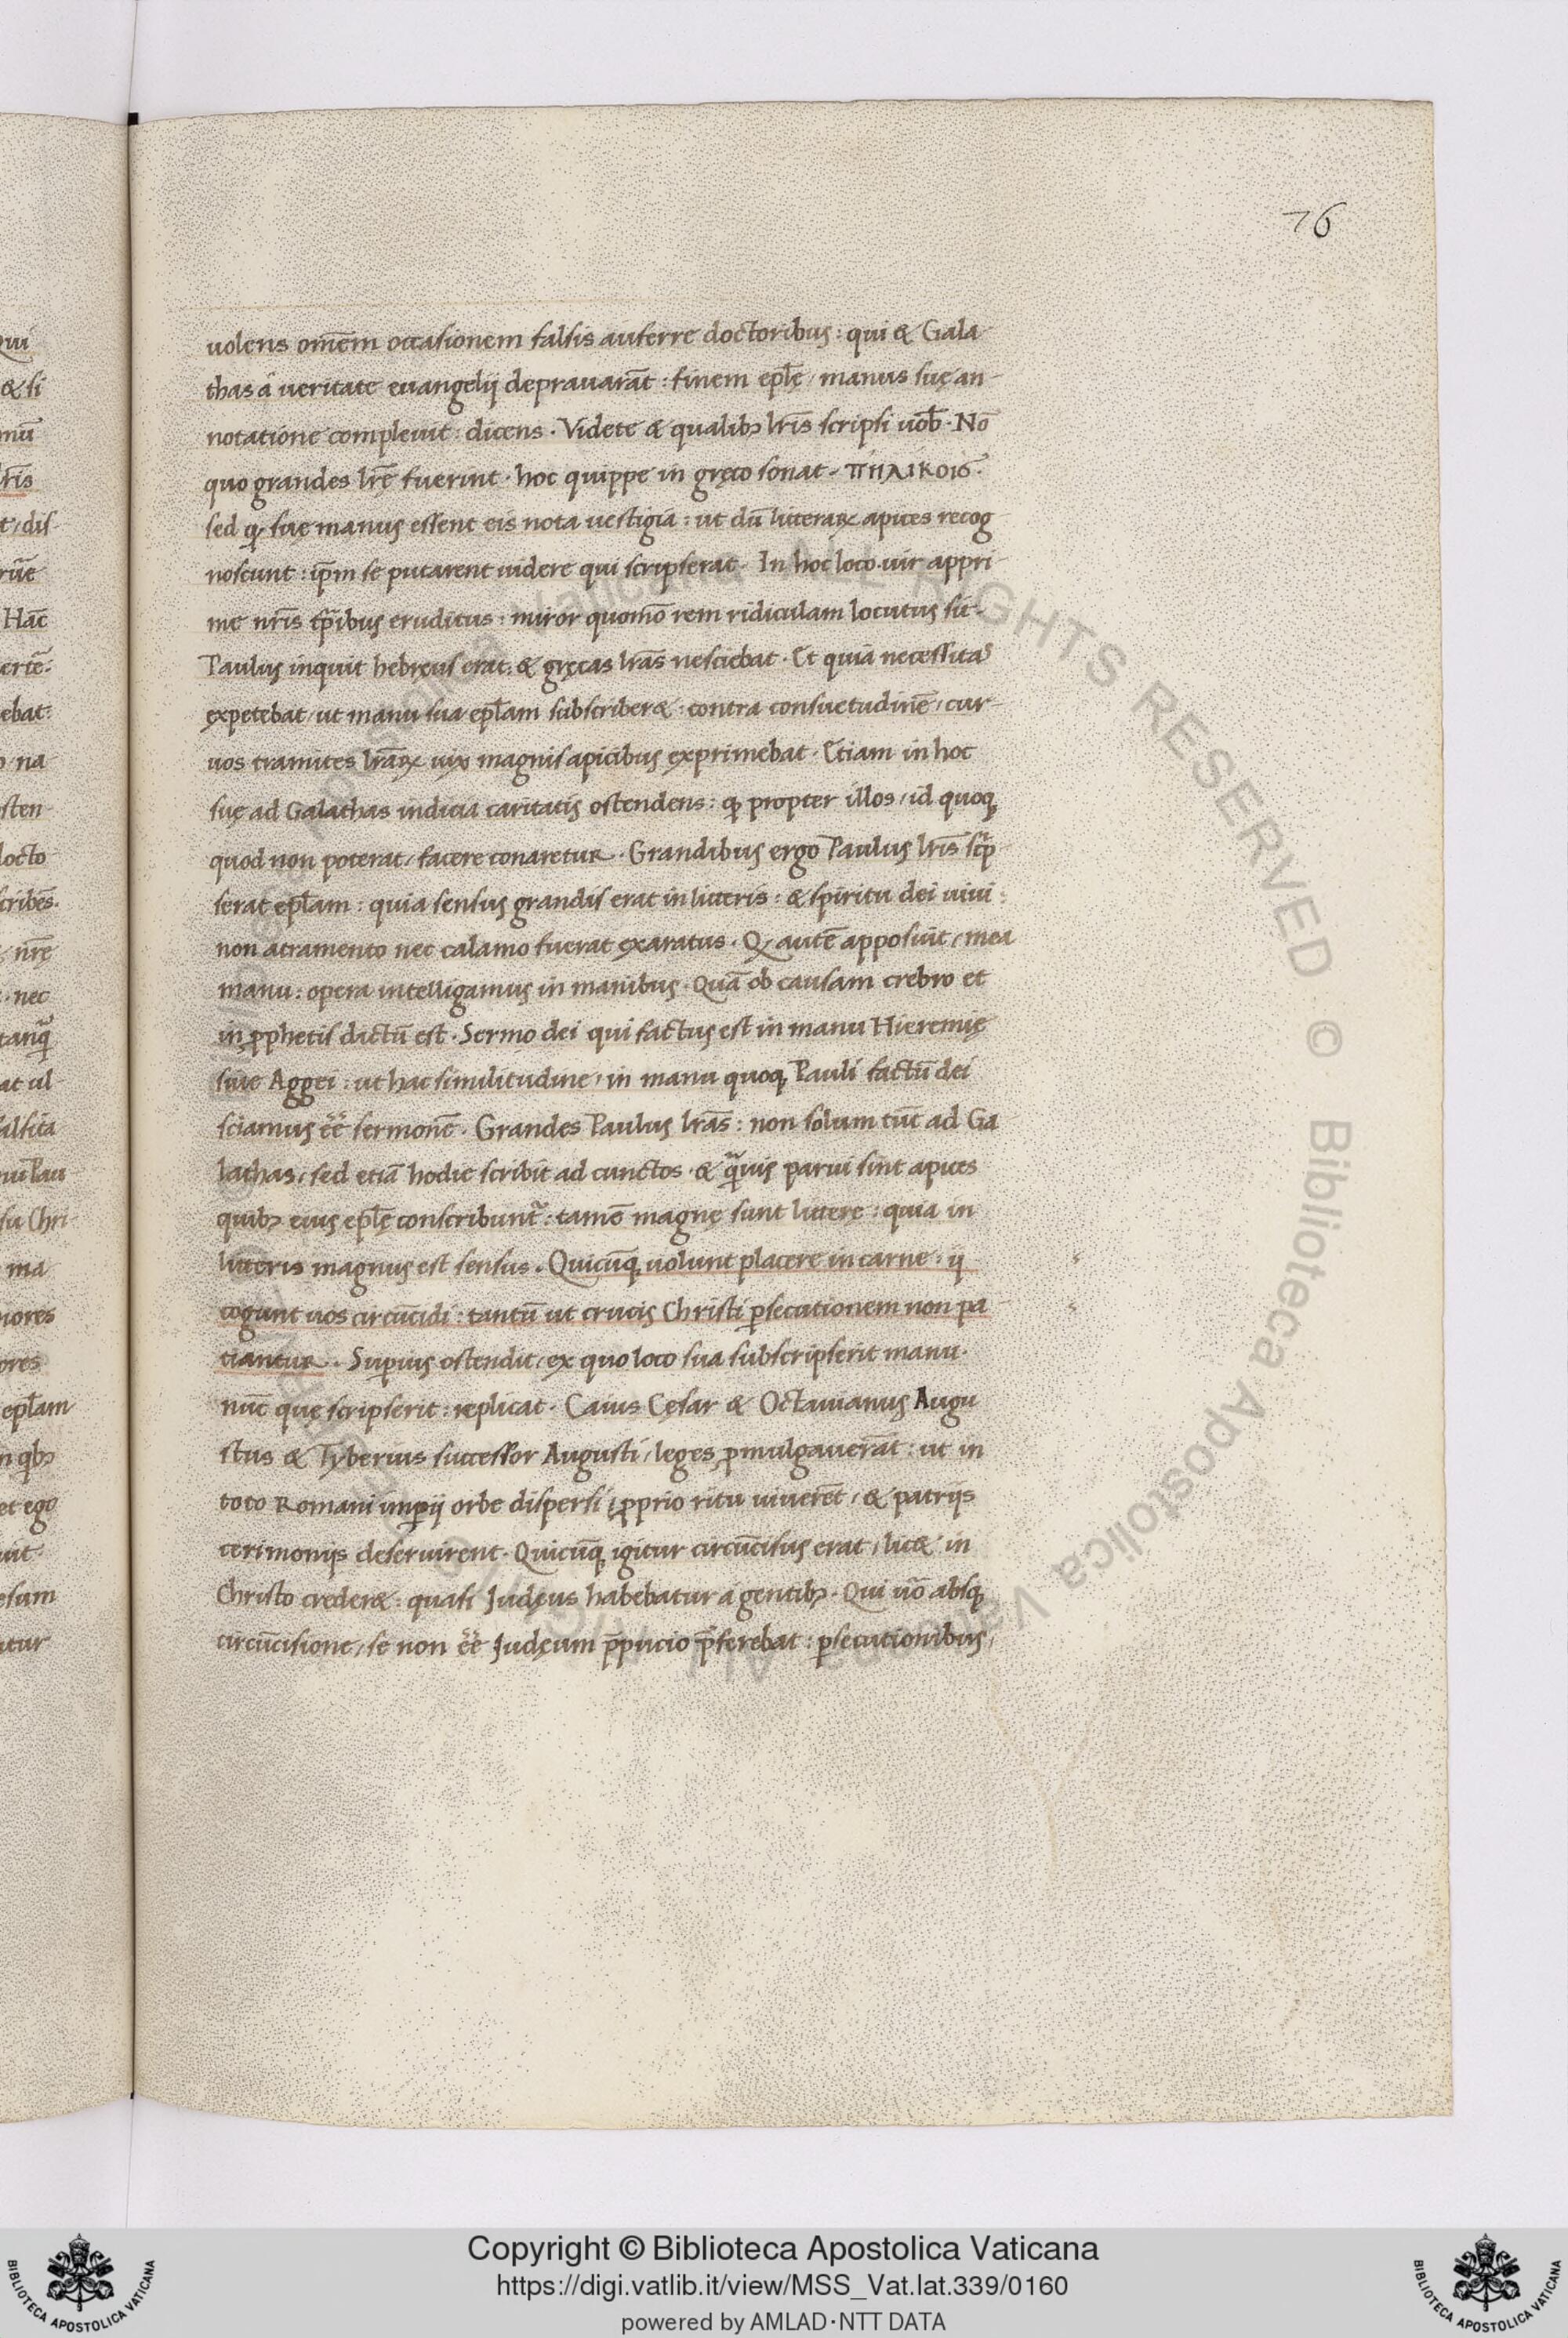 76
uolens om̄em occasionem falsis auferre doctoribus: qui & Gala-
thas a ueritate euangelij deprauarāt: finem epl̄ę / manus suę an-
notatione compleuit: dicens. Videte & qualibꝫ lr̄is scripsi uob̄. Nō
quo grandes lr̄ę fuerint. hoc quippe in gręco sonat. πηλικοις.
sed ꝙ suę manus essent eis nota uestigia: ut dū litteraꝝ apices recog
noscunt: ip̄m se putarent uidere qui scripserat. In hoc loco uir appri-
me nr̄is tp̄ibus eruditus: miror quomō rem ridiculam locutus sit.
Paulus inquit hebręus erat: & gręcas lr̄as nesciebat. Et quia necessitas
expetebat / ut manu sua epl̄am subscriber&: contra consuetudinē / cur-
uos tramites lr̄aꝝ uix magnis apicibus exprimebat. Etiam in hoc
suę ad Galathas indicia caritatis ostendens: ꝙ propter illos / id quoqꝫ
quod non poterat / facere conaretur. Grandibus ergo Paulus lr̄is scp̄
serat epl̄am: quia sensus grandis erat in litteris: & spiritu dei uiui:
non atramento nec calamo fuerat exaratus. Ꝙ autē apposuit / mea
manu: opera intelligamus in manibus. Quā ob causam crebro et
in ꝓphetis dictū est. Sermo dei qui factus est in manu Hieremię
siue Aggei: ut hac similitudine / in manu quoqꝫ Pauli factū dei
sciamus ēē sermonē. Grandes Paulus lr̄as: non solum tūc ad Ga
lathas / sed etiā hodie scribit ad cunctos. & qꝫuis parui sint apices
quibꝫ eius epl̄ę conscribunt̄: tamē magnę sunt litterę: quia in
litteris magnus est sensus. Quicūqꝫ uolunt placere in carne: ij
cogunt uos circūcidi: tantū ut crucis Christi ꝑsecutionem non pa
tiantur. Suꝑius ostendit / ex quo loco sua subscripserit manu.
nūc quę scripserit: replicat. Caius Cęsar & Octauianus Augu
stus & Tyberius successor Augusti / leges ꝓmulgauerāt: ut in
toto Romani imꝑij orbe dispersi / ꝓprio ritu uiuerēt / & patrijs
cerimonijs deseruirent. Quicūqꝫ igitur circūcisus erat / lic& in
Christo creder&: quasi Judęus habebatur a gentibꝫ. Qui uō absqꝫ
circūcisione / se non ēē Judęum p̄pucio p̄ferebat: ꝑsecutionibus /
Copyright © Biblioteca Apostolica Vaticana
https://digi.vatlib.it/view/MSS_Vat.lat.339/0160
powered by AMLAD·NTT DATA